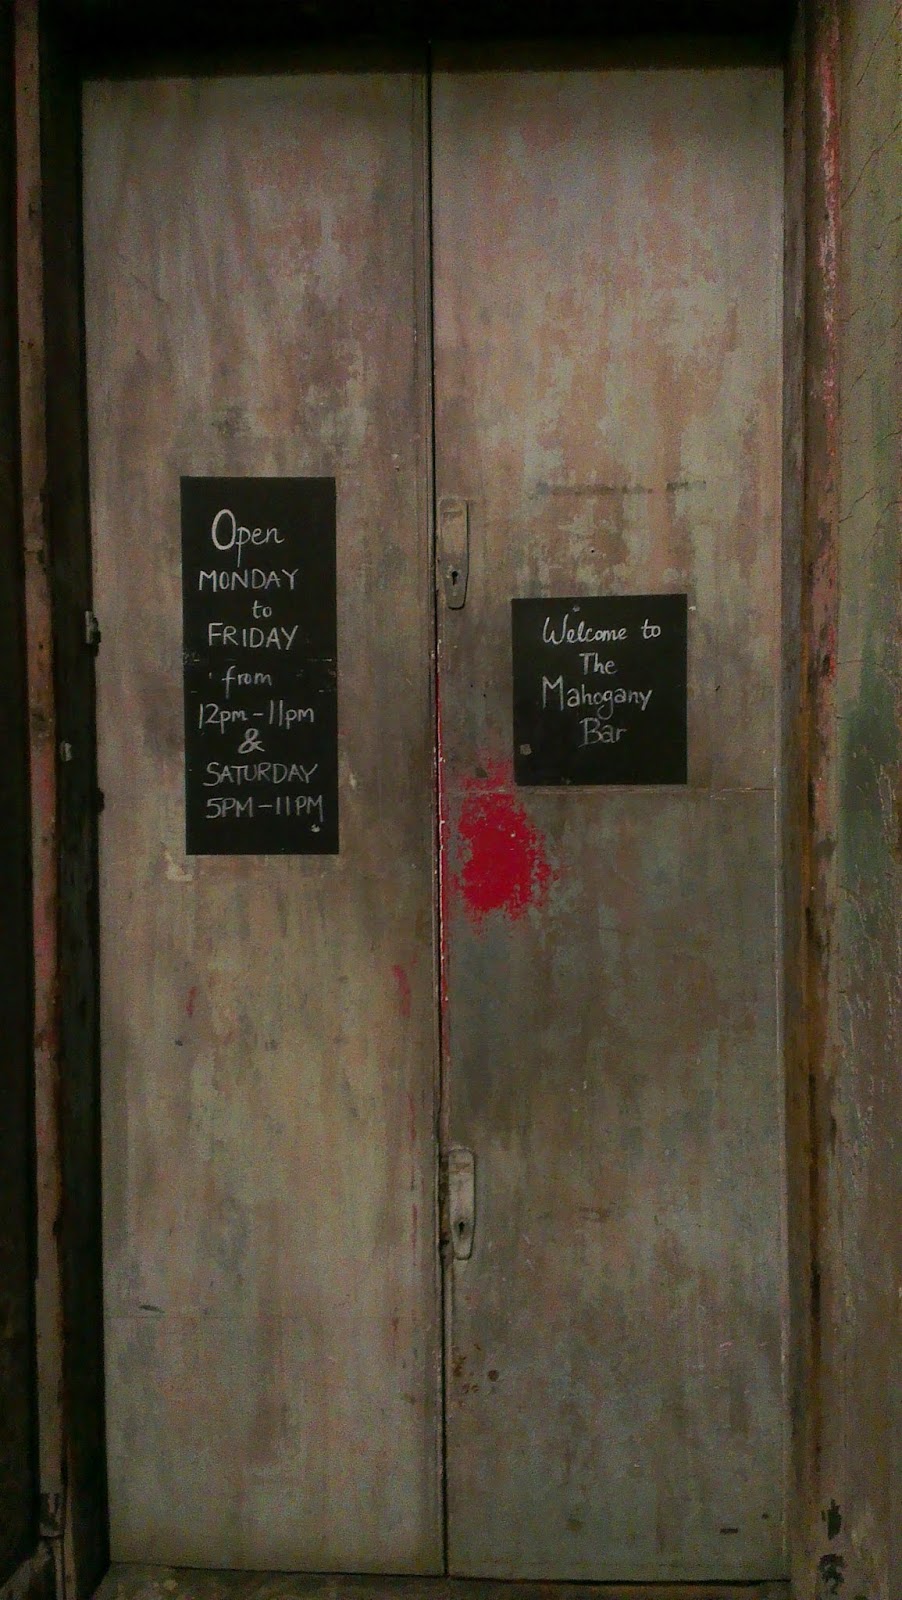 Open
MONDAY
to
FRIDAY
from
12pm-11pm
&
SATURDAY
5PM-11PM
Welcome to
The
Mahogany
Bar